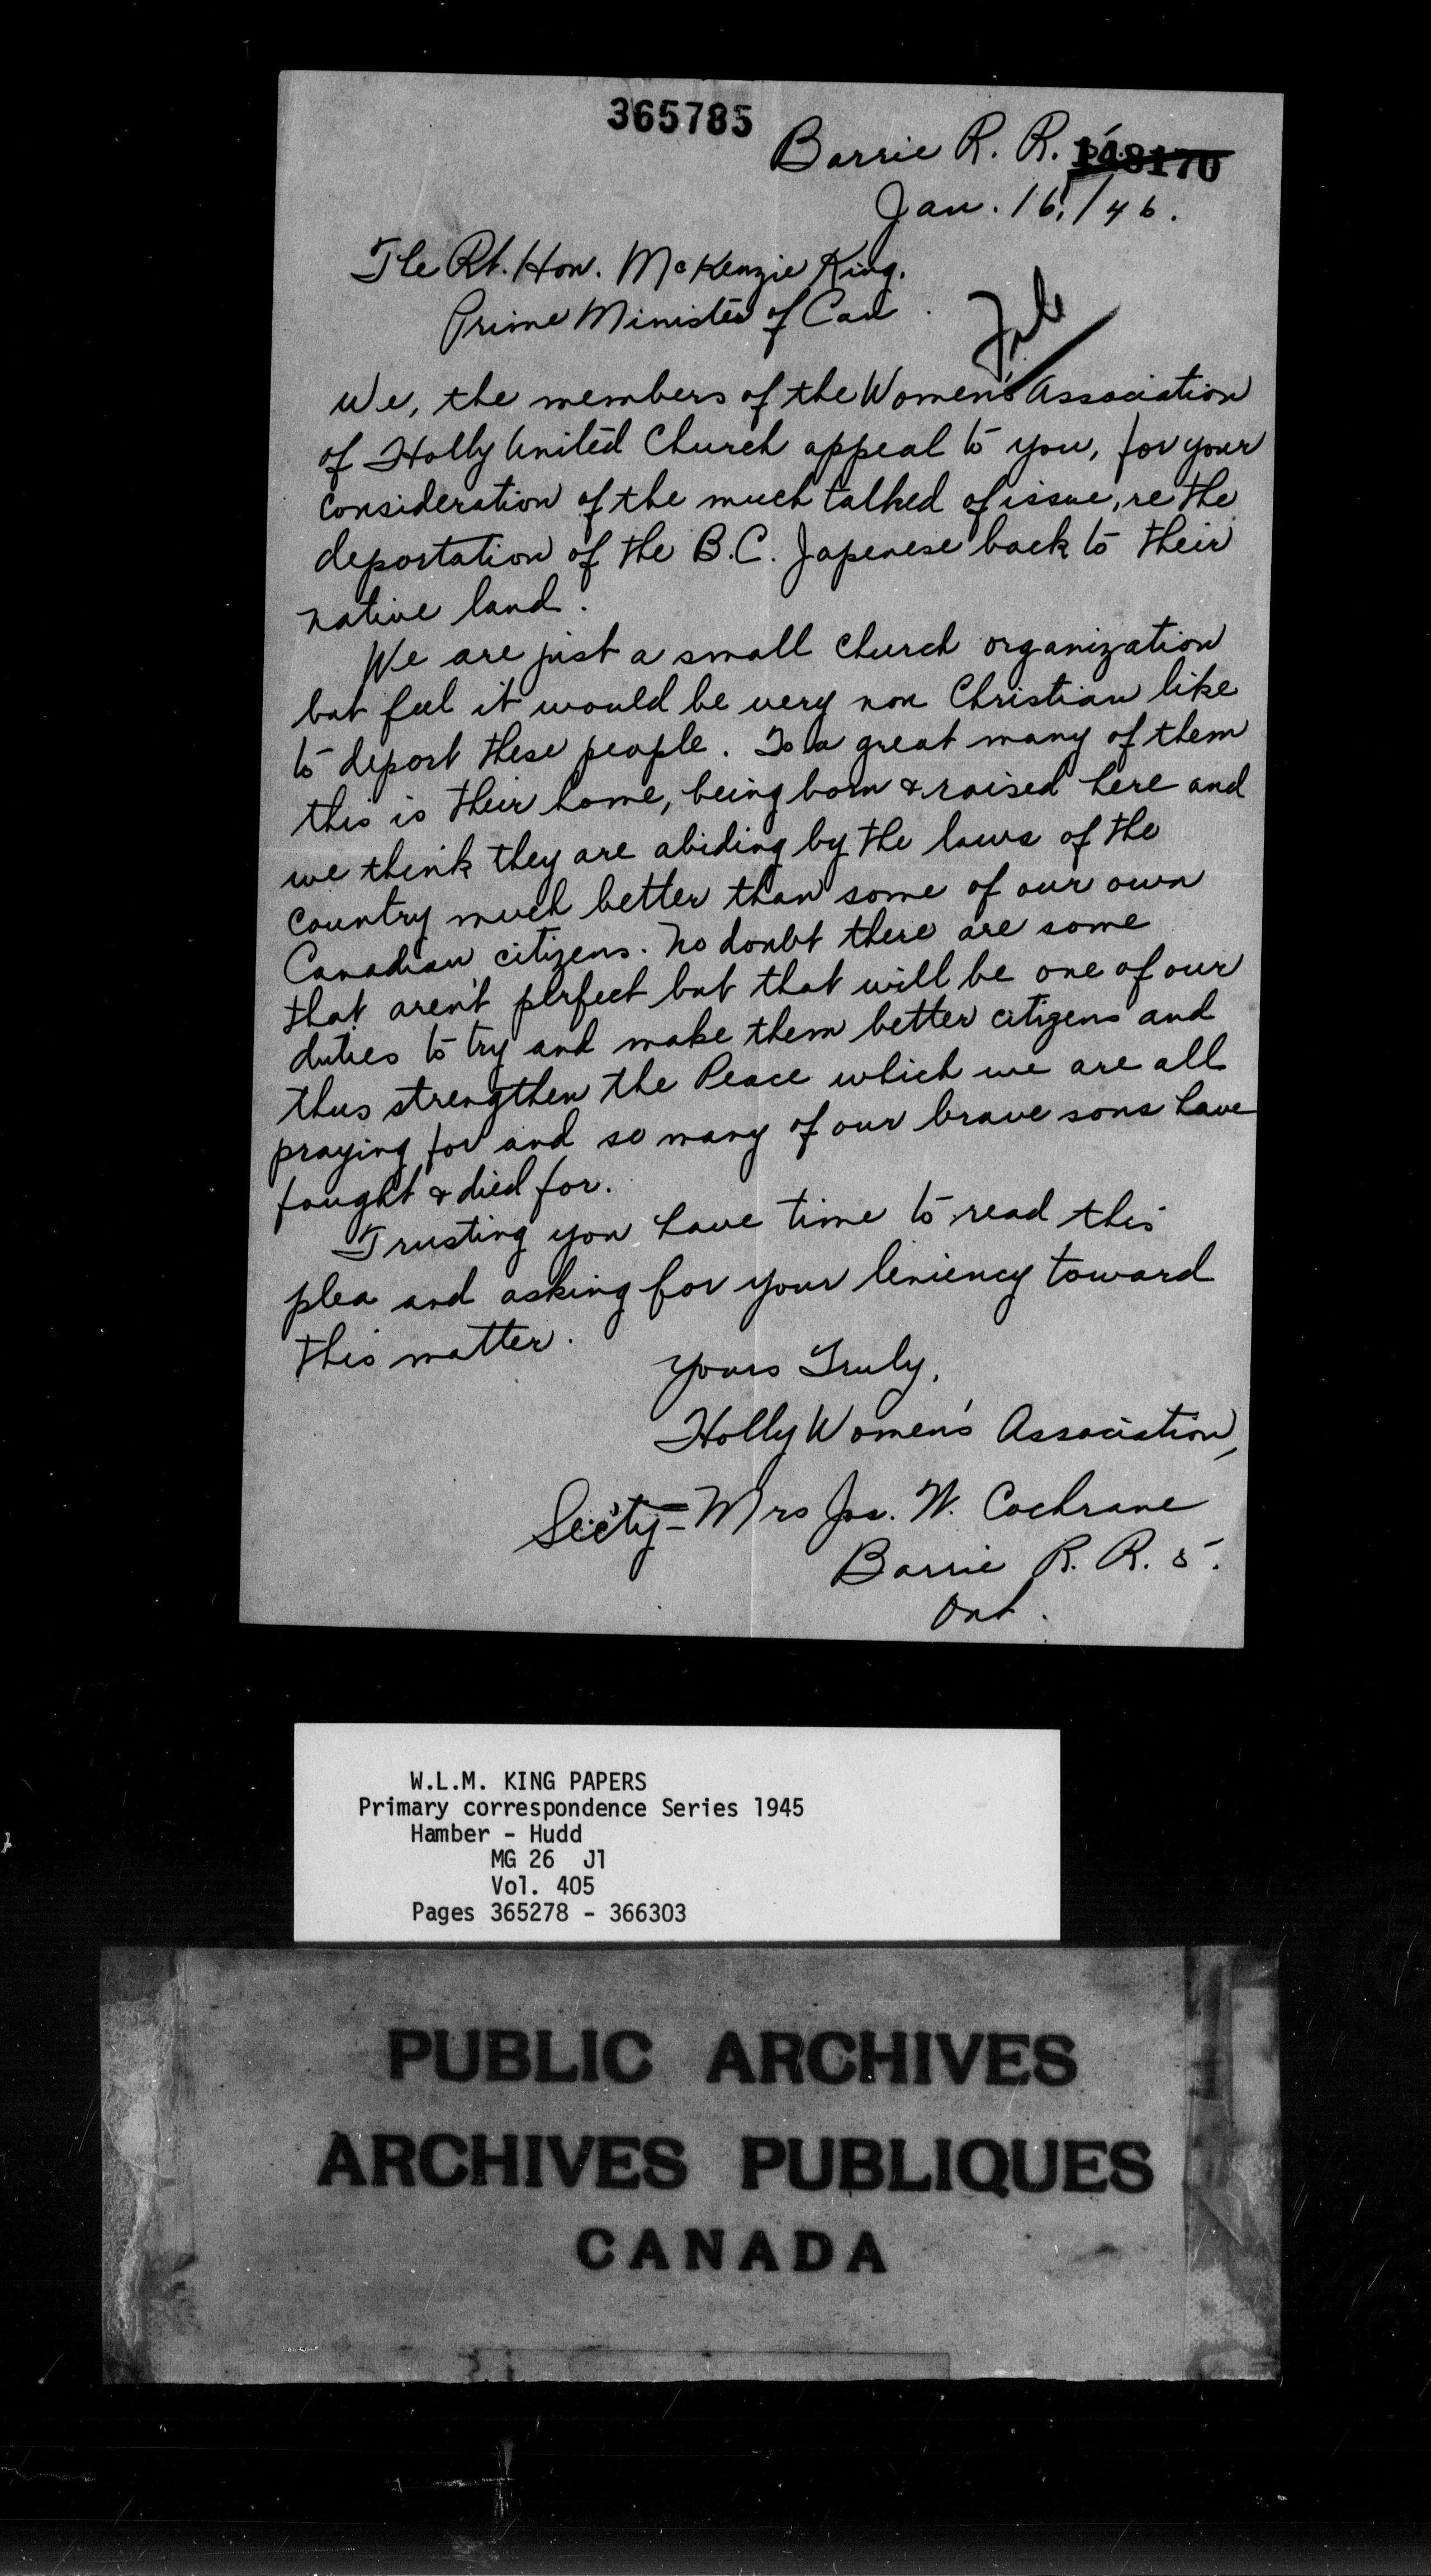 365785
Barrie R. R. 5.
148170
Jan. 16,/46.
The Rt. Hon. McKenzie King.
Prime Minister of Can.
File
We, the members of the Women's Association
of Holly United Church appeal to you, for your
consideration of the much talked of issue, re the
deportation of the B.C. Japenese back to their
native land.
We are just a small church organization
but feel it would be very non Christian like
to deport these people. To a great many of them
this is their home, being born & raised here and
we think they are abiding by the laws of the
country much better than some of our own
Canadian citizens. No doubt there are some
that aren't perfect but that will be one of our
duties to try and make them better citizens and
thus strengthen the Peace which we are all
praying for and so many of our brave sons have
fought & died for.
Trusting you have time to read this
plea and asking for your leniency toward
this matter.
Yours Truly,
Holly Women's Association,
Sec'ty - Mrs Jas. W. Cochrane
Barrie R. R. 5.
Ont.
W.L.M. KING PAPERS
Primary correspondence Series 1945
Hamber - Hudd
MG 26 J1
Vol. 405
Pages 365278 - 366303
PUBLIC ARCHIVES
ARCHIVES PUBLIQUES
CANADA